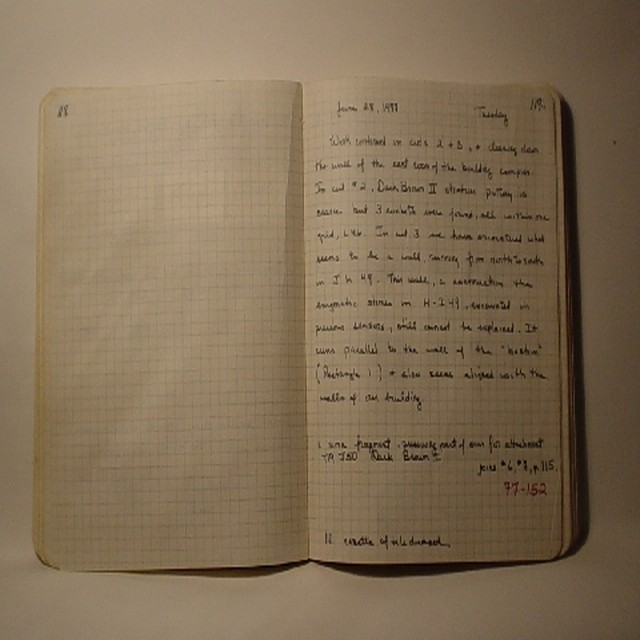 118
June 28, 1977 Tuesday 119.
Work continued in cuts 2 + 3, + cleaning down
the wall of the east room of the building complex.
In cut #2, Dark Brown II stratum pottery is
scarce but 3 rocchetti were found, all within one
grid, L46. In cut 3 we have encountered what
seems to be a wall, running from north to south
in J 49. This wall, a continuation the
enigmatic stones in H-I 49, excavated in
previous seasons, still cannot be explained. It
runs parallel to the wall of the "bastion"
(Rectangle 1) + also seems aligned with the
walls of our building.
1. fragment, part of for attachment
TR J50 Dark Brown II
joins #6, #7, p. 115.
77-152
12 crates of tile dumped.